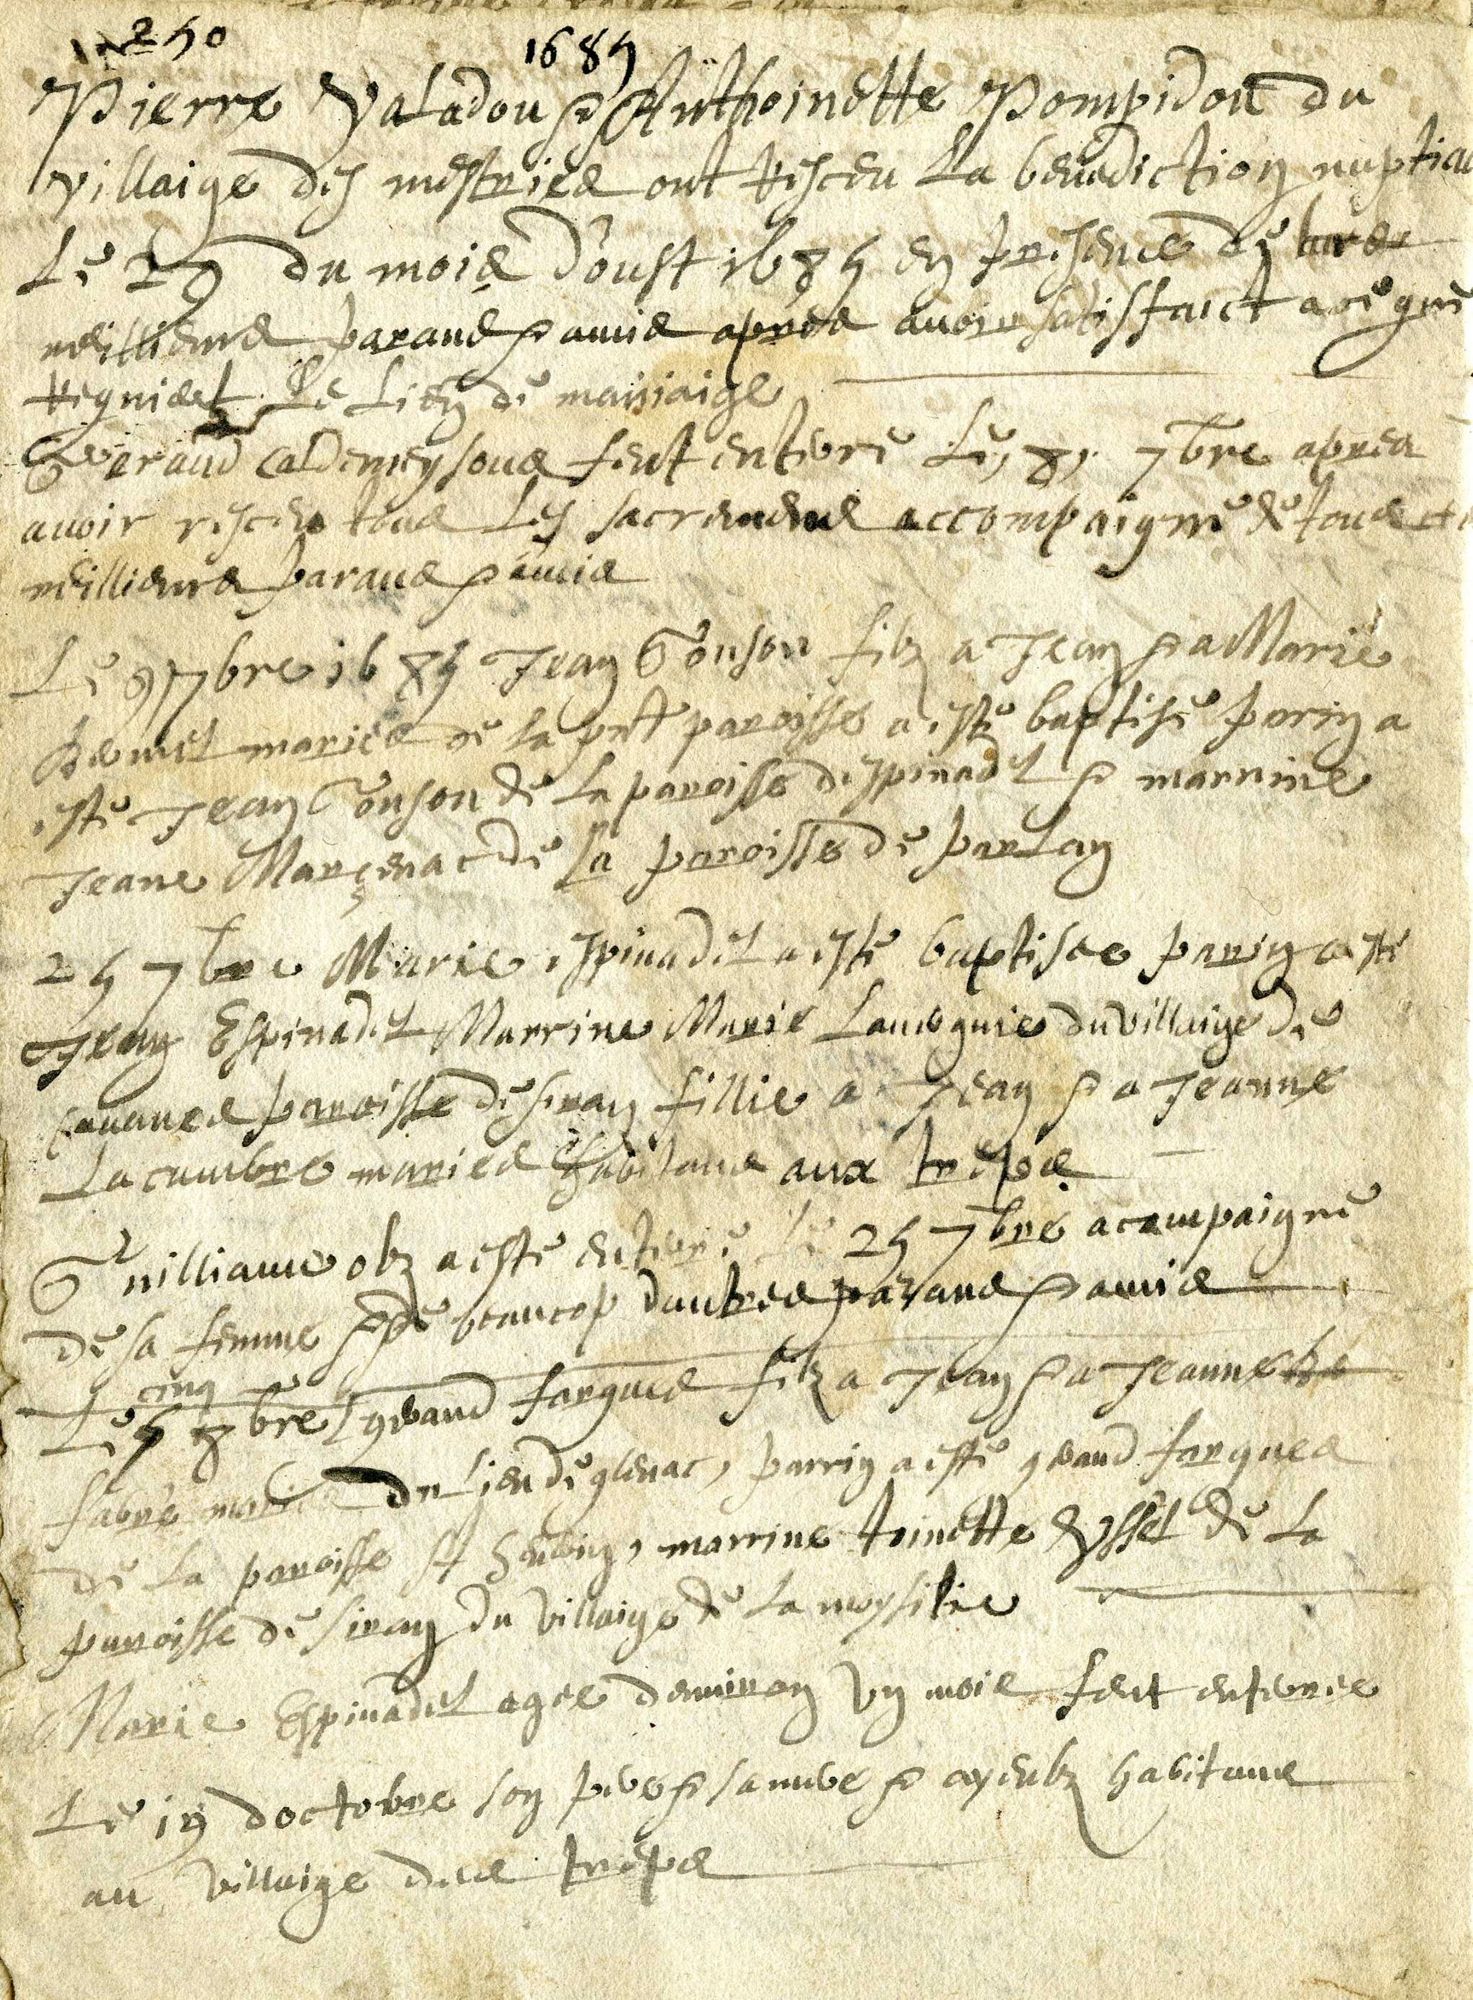 N° 50
1685
Pierre Valadou & Anthoinette Pompidou du
villaige des mestries ont resceu La benediction nuptial
Le 29 du mois d'oust 1685 en presence de leurs
meillieurs parans & amis apres avoir satisfaict a ce que
requiert Le Lien de mariaige
Geraud Caldemeysous feust enterré Le 8 7bre apres
avoir resceu tous Les sacremens accompaigné de tous
meillieurs parans & amis
Le 9 7bre 1685 Jean Gouson filz a Jean & a Marie
mariés de La pnt paroisse a esté baptisé parin a
esté Jean Gouson de La paroisse despinadel & marrine
Jeane Marcenac de La paroisse de parLan
25 7bre Marie espinadel a esté baptisee parin a esté
Jean Espinadel Marrine Marie Lavergnie du villaige de
paroisse de siran fillie a Jean & a Jeanne
Lacambre mariés habitans aux treps
Guilliaume obz a esté enterré Le 25 7bre acompaigné
de sa femme & de beaucop dautres parans & amis
cinq
Le 5 8bre geraud fargues filz a Jean & a Jeanne
fabre mariés du Lieu de glenac, parrin a esté geraud fargues
de La paroisse st marrine toinette Vyssel de La
paroisse de siran du villaige de La
Marie Espinadel agee denviron un mois feut enterree
Le 19 doctobre son pere & sa mere & ayeulz habitans
au villaige des treps